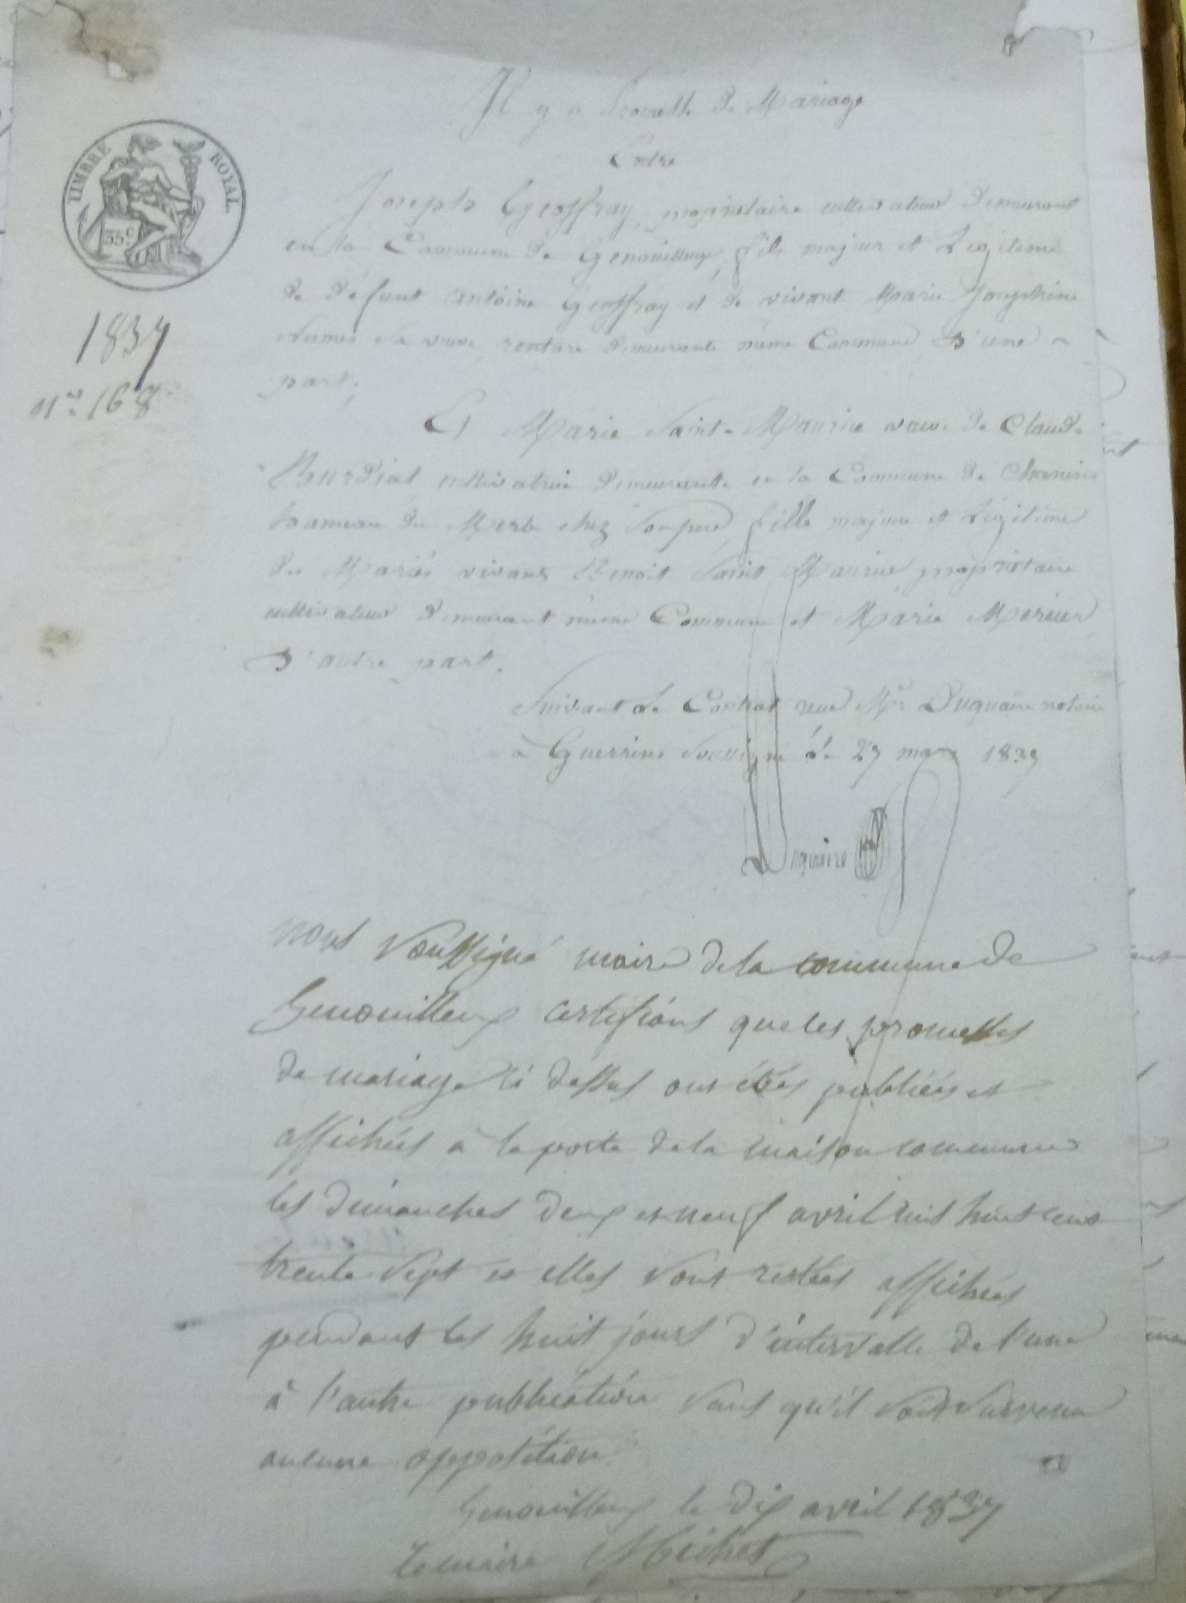 Il y a Promesse de Mariage
Entre
TIMBRE ROYAL.
35 c
1837
168
Joseph Geoffray, propriétaire cultivateur demeurant
en la Commune de Genouilleux, fils majeur et Légitime
de défunt Antoine Geoffray et de vivant Marie Josephine
sa veuve, rentière demeurant même Commune D'une
part;
Et Marie Saint-Maurice veuve de Claude
cultivatrice demeurante en la Commune de
hameau du chez Son père, fille majeure et Légitime
des Mariés vivants Benoit Saint Maurice propriétaire
cultivateur demeurant même Commune et Marie Mercier
D'autre part.
Suivant Le Contrat reçu Mr Duquaire notaire
à Guerreins Soussigné le 27 mars 1837
Duquaire
nous soussigné maire de la commune de
Genouilleux certifions que les promesses
de mariage ci dessus ont étés publiées et
affichées à la porte de la maison commune
les dimanches deux et neuf avril mil huit cent
trente sept et elles sont restées affichées
pendant les huit jours d'intervalle de l'une
à l'autre publication sans qu'il soit survenu
aucune opposition.
Genouilleux le dix avril 1837
Le maire Michet